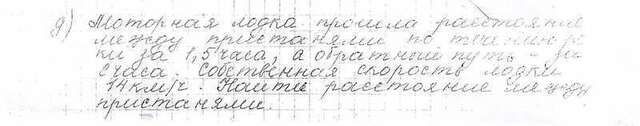 д) Моторная лодка прошла расстояние
между пристанями по течению ре
ки за 1,5 часа, а обратный путь за
2 часа. Собственная скорость лодки
14 км/ч. Найти расстояние между
пристанями.